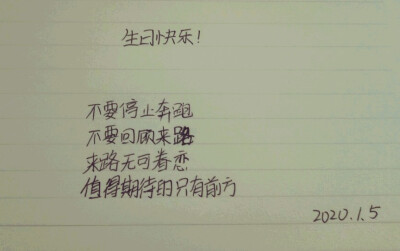 生日快乐！
不要停止奔跑
不要回顾来路
来路无可眷恋
值得期待的只有前方
2020.1.5